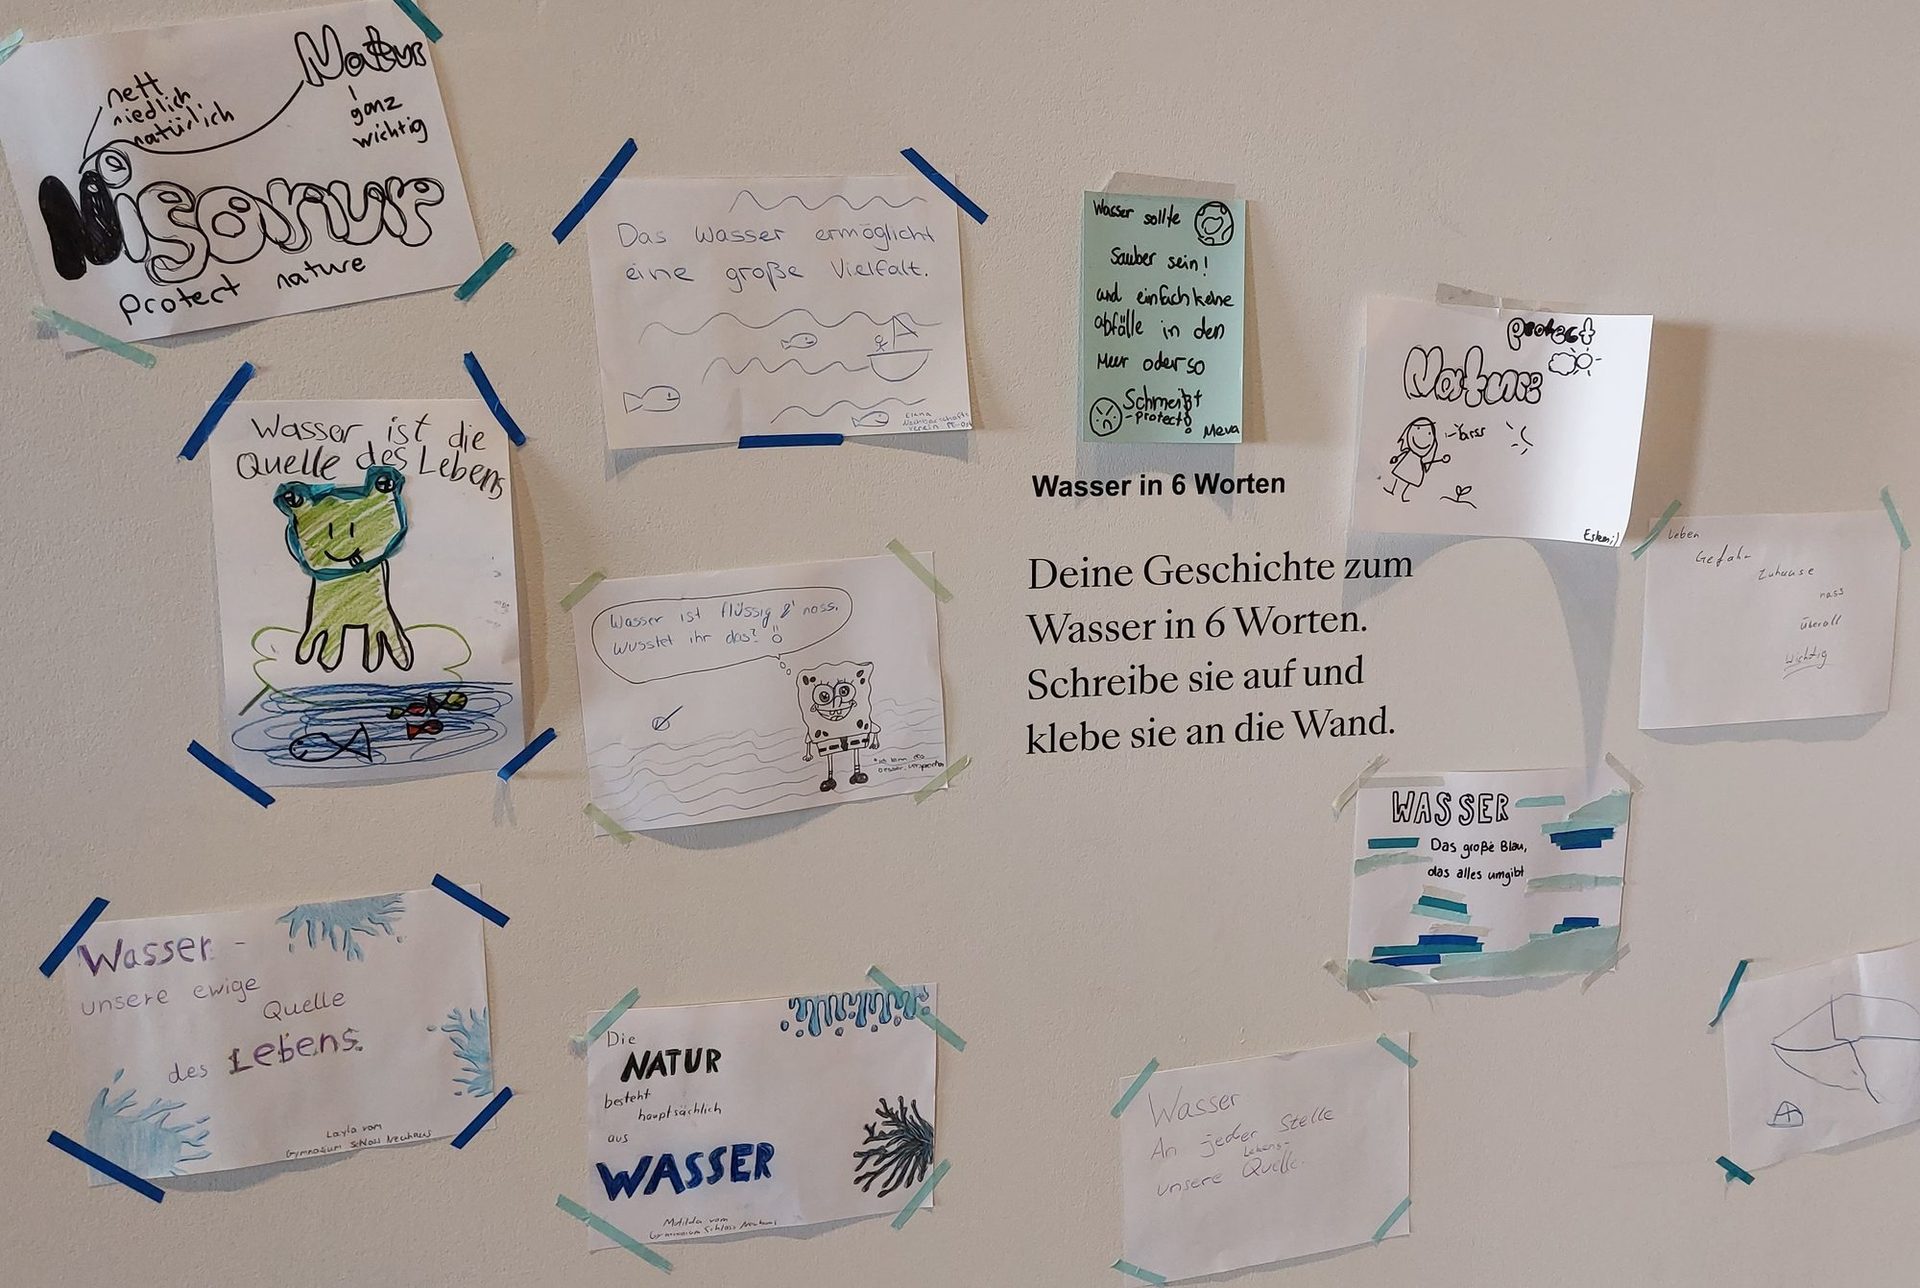 nett
niedlich
natürlich
Natur
ganz
wichtig
protect nature
Das Wasser ermöglicht
eine große Vielfalt.
Wasser sollte
sauber sein!
und einfach keine
abfälle in den
Meer oder so
Schmeißt
-protect!
Meva
protect
Nature
Wasser ist die
Quelle des Lebens
Wasser in 6 Worten
Deine Geschichte zum
Wasser in 6 Worten.
Schreibe sie auf und
klebe sie an die Wand.
Leben
Gefahr
Zuhause
nass
überall
wichtig
Wasser ist flüssig & nass.
Wusstet ihr das?
WASSER
Das große Blau,
das alles umgibt
Wasser -
unsere ewige
Quelle
des Lebens.
Layla vom
Gymnasium Schloss Neuhaus
Die
NATUR
besteht
hauptsächlich
aus
WASSER
Matilda vom
Gymnasium Schloss Neuhaus
Wasser
An jeder Stelle
unsere Lebens-
Quelle.